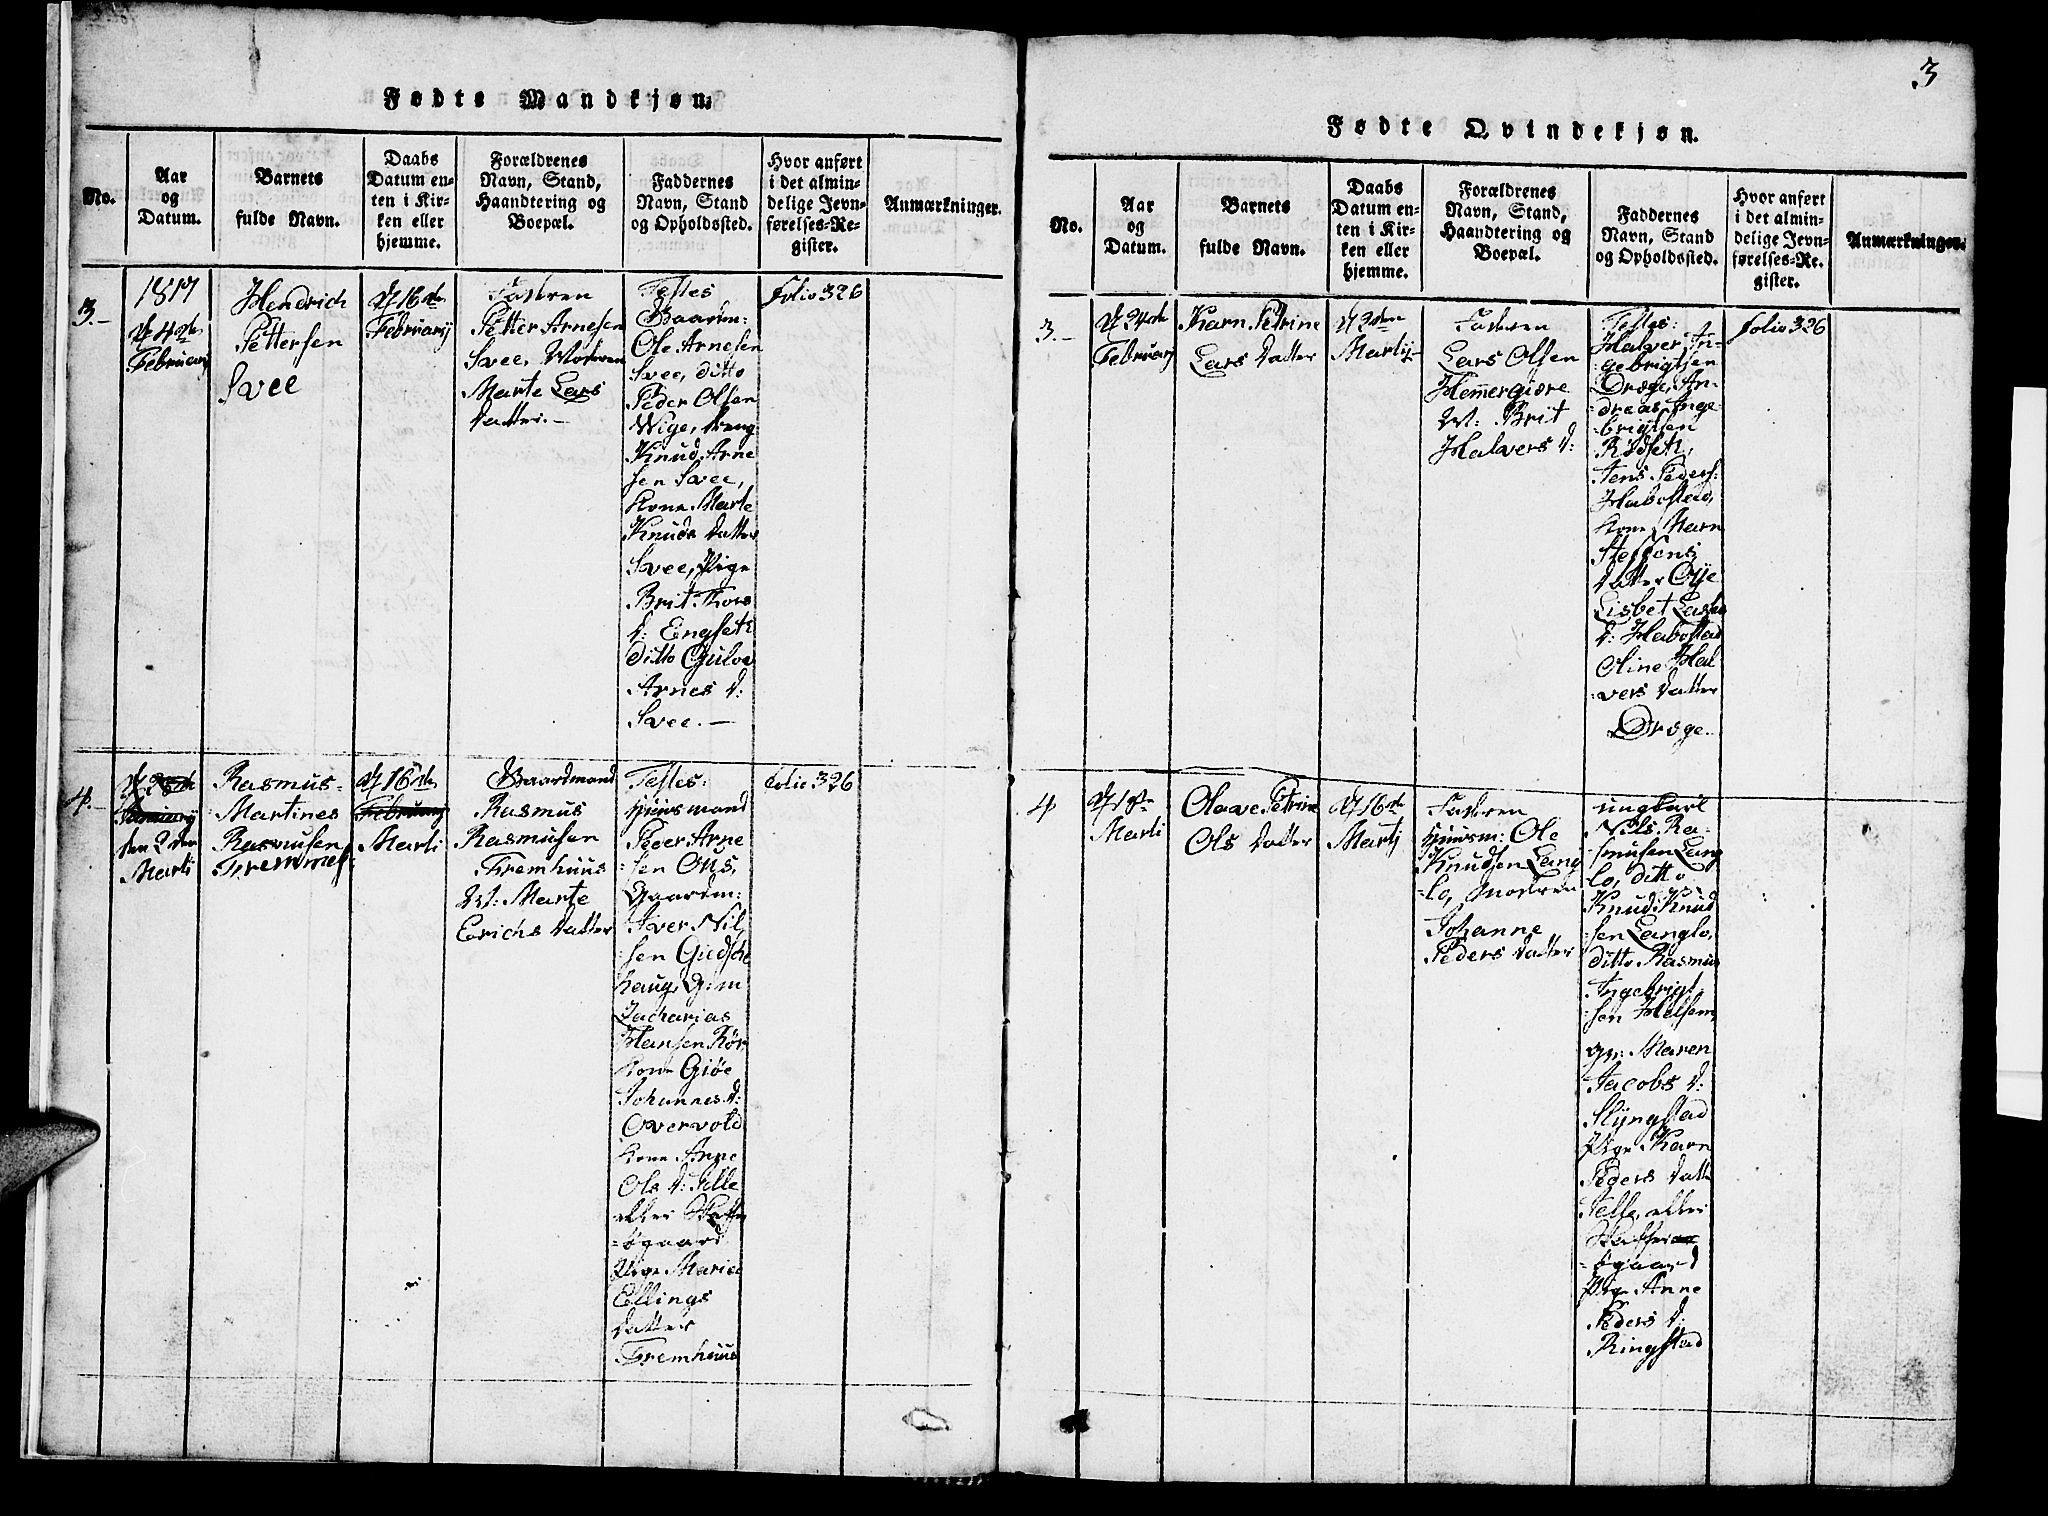 Fødte Mandkjøn.
No.
Aar
og
Datum.
Barnets
fulde Navn.
Daabs
Datum en-
ten i Kir-
ken eller
hjemme.
Forældrenes
Navn, Stand,
Haandtering og
Boepæl.
Faddernes
Navn, Stand
og Opholdssted.
Hvor anført
i det almin-
delige Jevn-
førelses-Re-
gister.
Anmærkninger.
3.-
1817
d 4de
Februarij
Hendrich
Pettersen
Svee
d 16de
Februarij
Faderen
Petter Arnesen
Svee, Moderen
Marte Lars
datter.-
Testes
Gaardm:
Ole Arnesen
Svee, ditto
Peder Olsen
Wige, dreng
Knud Arne
sen Svee,
Kone Marte
Knuds datter
Svee, Pige
Brit Thors
d: Engset
ditto Gulva
Arnes d:
Svee.-
folio 326
4.-
den 2den
Marti
Rasmus
Martines
Rasmusen
Fremmes
d 16de
Februarij
Marti
Gaardmand
Rasmus
Rasmusen
Fremhuus
M: Marte
Erichs datter
Testes:
Huusmand
Peder Arne
sen Ons,
Gaardm:
Iver Nil
sen Giedsche
haug, G:m
Zacharias
Hansen Rør
Kone Giøe
Johannes d:
Overvold
Kone Anne
Ols d: Telle
eller
-øgaard
Pige Marie
Ellings
datter
Fremhuus
folio 326
3
Fødte Qvindekjøn.
No.
Aar
og
Datum.
Barnets
fulde Navn.
Daabs
Datum en-
ten i Kir-
ken eller
hjemme.
Forældrenes
Navn, Stand,
Haandtering og
Boepæl.
Faddernes
Navn, Stand
og Opholdssted.
Hvor anført
i det almin-
delige Jevn-
førelses-Re-
gister.
Anmærkninger.
3.-
d 24de
Februarij
Karn Petrine
Lars datter
d 2den
Martij
Faderen
Lars Olsen
Hemmergiøre
M: Brit
Halvers d:
Testes:
Halver In-
gebrigtsen
Drøge, An-
dreas Inge-
brigtsen
Rødset,
Jens Peders:
Habostad,
Kone Marn
Steffens
datter Øye
Lisbet Lars
d: Habostad
Oline Hal
vers datter
Drøge.
folio 326
4
d 1ste
Marti
Olave Petrine
Ols datter
d 16de
Martij
Faderen
Huusm: Ole
Knudsen Lang
-lo, Moderen
Johanne
Peders datter
ungkarl
Nils Ra-
smusen Lang
lo, ditto
Knud Knud
sen Langlo,
ditto Rasmus
Ingebrigt
sen Helsem,
Maren
Jacobs d:
Slyngstad
Pige Karn
Peders datt
Telle, eller
-øgaard
Pige Anne
Peders d:
Ringstad